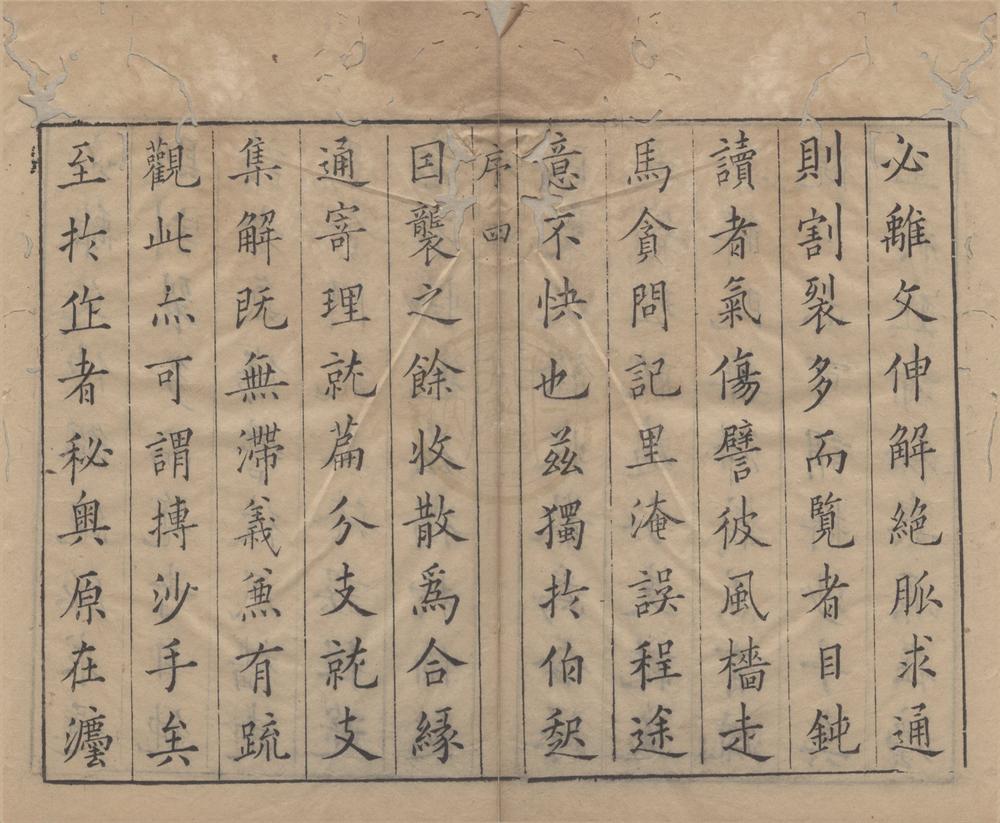 必離文伸解絕脈求通
則割裂多而覽者目鈍
讀者氣傷譬彼風檣走
馬貪問記里淹誤程途
意不快也茲獨扵伯
序四
因襲之餘收散爲合緣
通寄理就篇分支就支
集解既無滯義兼有疏
觀此亦可謂摶沙手矣
至扵作者秘奥原在